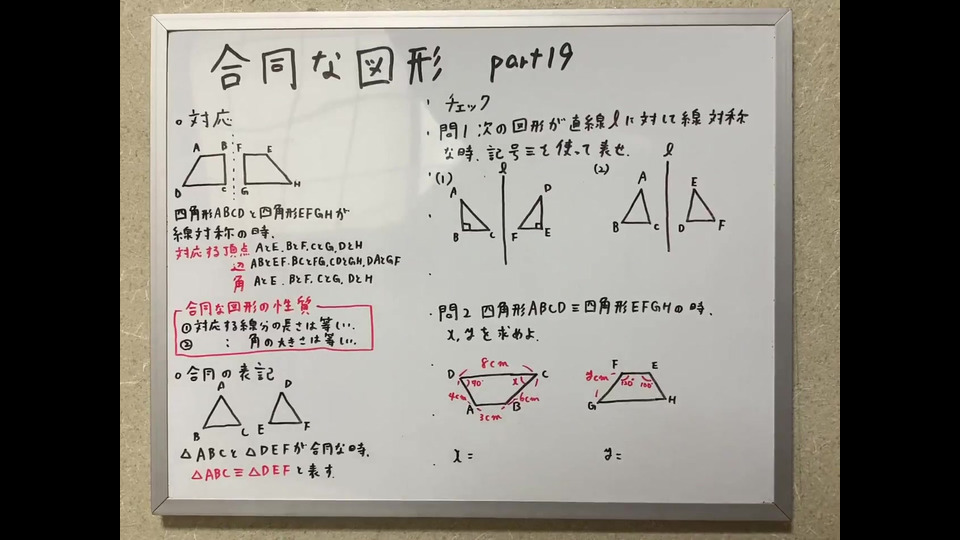 合同な図形 part19
○対応
A B F E
D C G H
四角形ABCDと四角形EFGHが
線対称の時.
対応する頂点 AとE. BとF, CとG, DとH
辺 ABとEF. BCとFG, CDとGH, DAとGF
角 AとE. BとF. CとG, DとH
合同な図形の性質
①対応する線分の長さは等しい.
② : 角の大きさは等しい.
○合同の表記
A D
B C E F
△ABCと△DEFが合同な時.
△ABC≡△DEFと表す
チェック
問1 次の図形が直線lに対して線対称
な時. 記号≡を使って表せ.
(1) l (2) l
A D A E
B C F E B C D F
問2 四角形ABCD≡四角形EFGHの時.
x, yを求めよ.
8cm
D 90° x C
4cm A 3cm B 6cm
F E
ycm 120° 100°
G H
x= y=